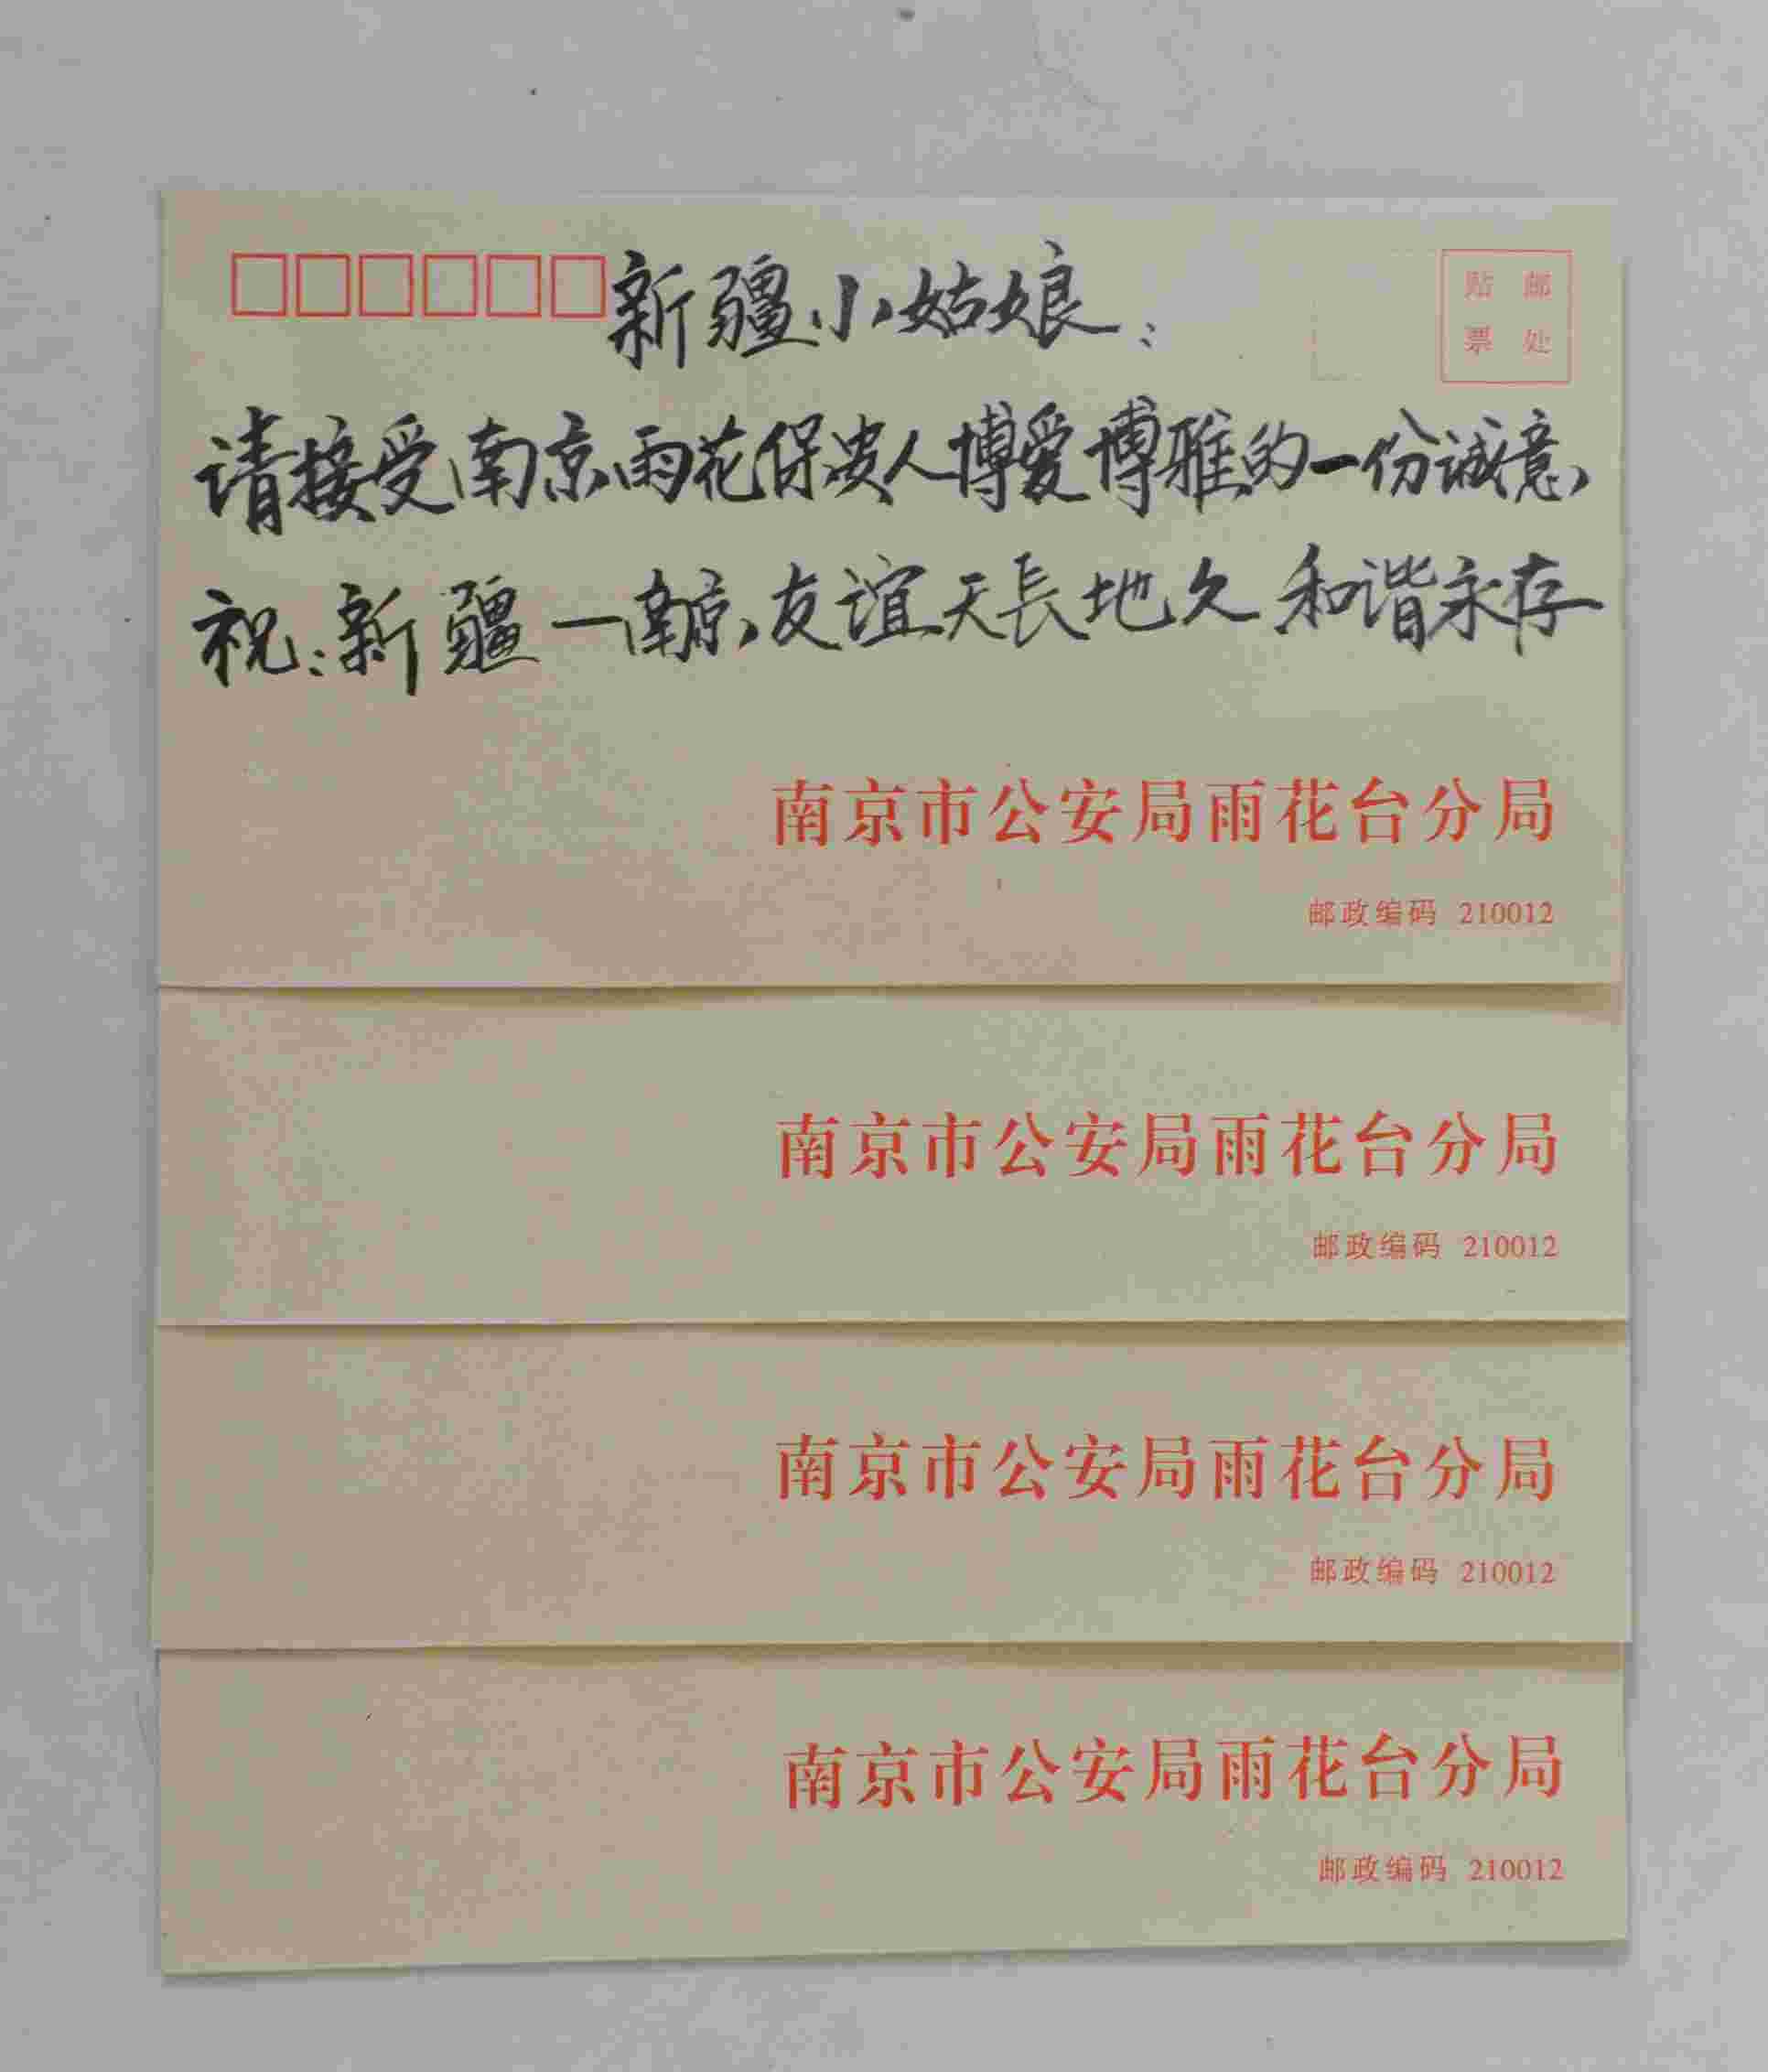 新疆小姑娘：
贴邮
票处
请接受南京雨花保安人博爱博雅的一份诚意，
祝：新疆一南京，友谊天長地久 和谐永存
南京市公安局雨花台分局
邮政编码 210012
南京市公安局雨花台分局
邮政编码 210012
南京市公安局雨花台分局
邮政编码 210012
南京市公安局雨花台分局
邮政编码 210012